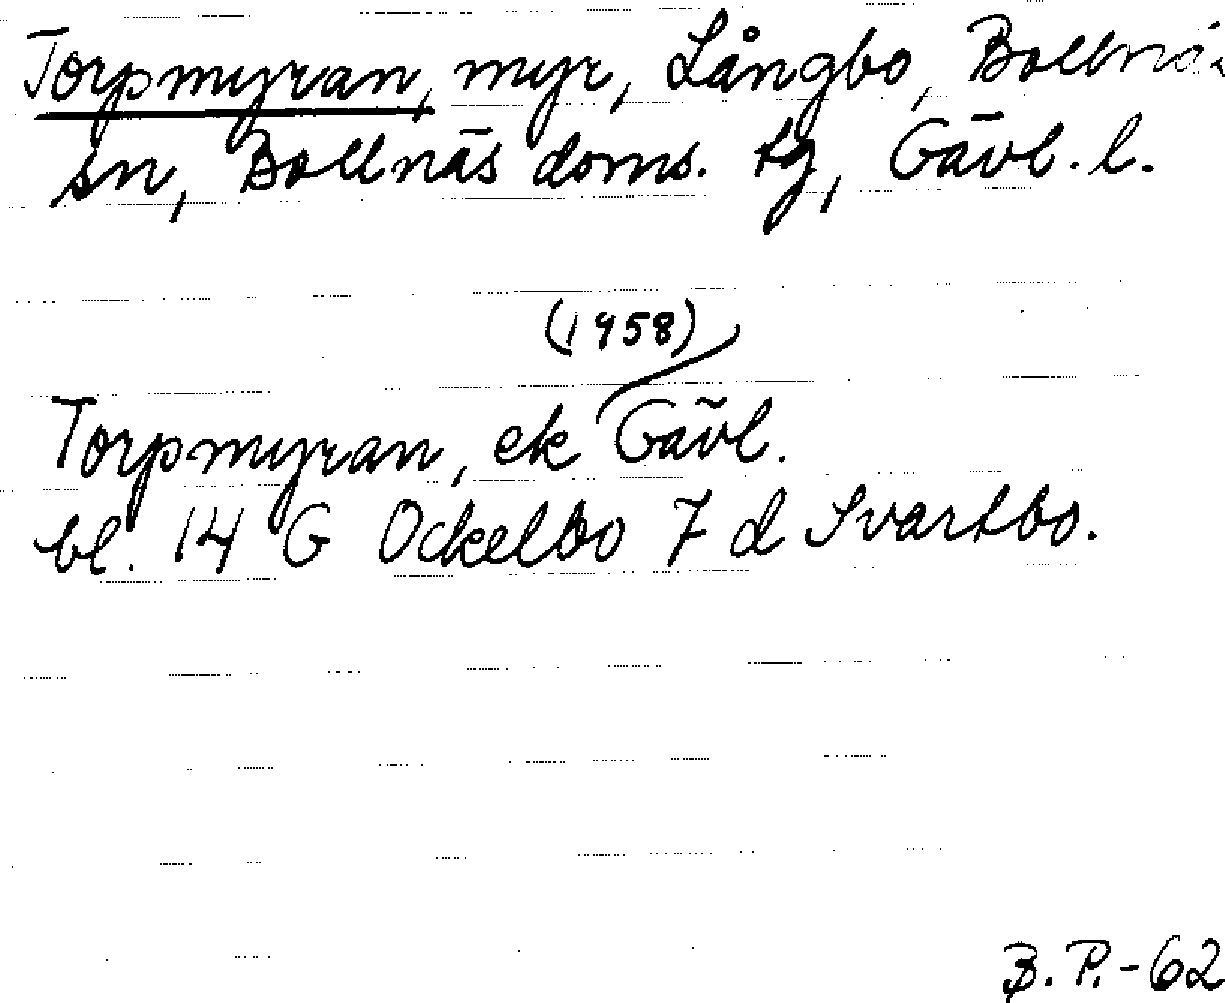 Torpmyran, myr, Långbo, Bollnäs
sn, Bollnäs doms. tg, Gävl. l.
(1958)
Torpmyran, ek Gävl.
bl. 14 G Ockelbo 7 d Svartbo.
B. P. - 62